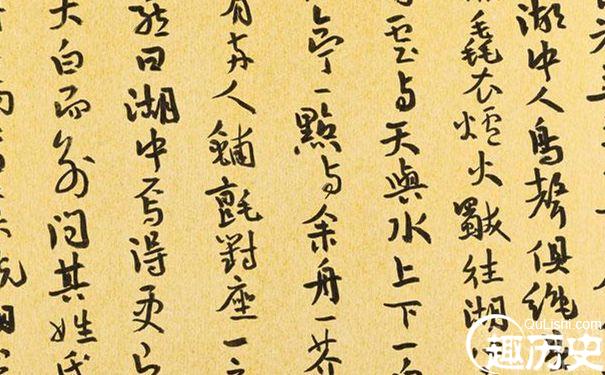 湖中人鳥聲俱絕
毳衣爐火獨往湖
雲与天與水上下一
亭一點与余舟一芥
有兩人鋪氈對座一
曰湖中焉得更
大白而別問其姓氏
QuLishi.com
趣历史